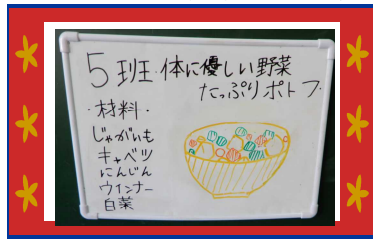 5班・体に優しい野菜
たっぷりポトフ
・材料・
じゃがいも
キャベツ
にんじん
ウインナー
白菜